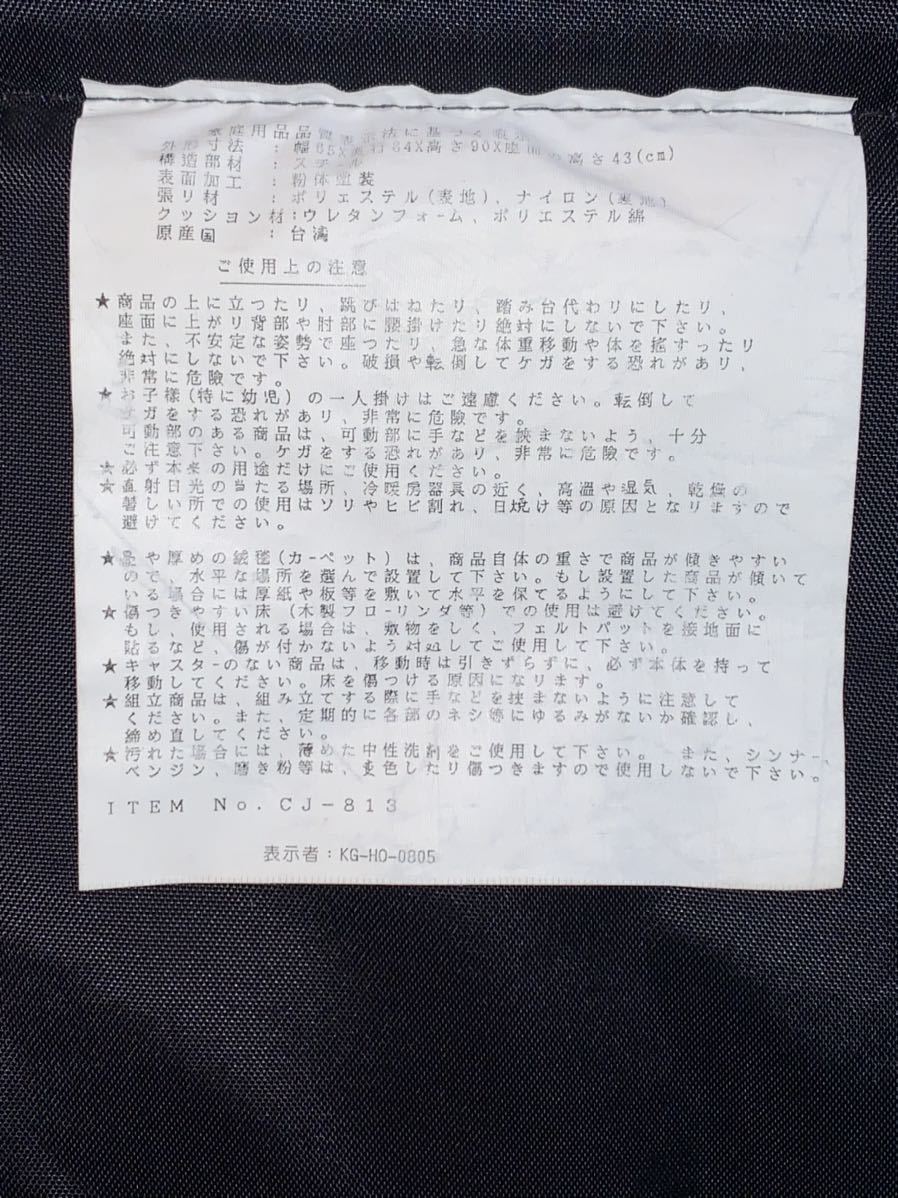 家庭用品品質表示法に基づく
外形寸法 : 幅65X 84X高さ90X座 の高さ43(cm)
構造部材 : スチール
表面加工 : 粉体塗装
張リ材 : ポリエステル(表地)、ナイロン(裏地)
クッション材:ウレタンフォーム、ポリエステル綿
原産国 : 台湾
ご使用上の注意
★商品の上に立つたり、跳びはねたり、踏み台代わリにしたリ、
座面に上がリ背部や肘部に腰掛けたリ絶対にしないで下さい。
また、不安定な姿勢で座つたリ、急な体重移動や体を揺すったリ
絶対にしないで下さい。破損や転倒してケガをする恐れがあリ、
非常に危険です。
★お子様(特に幼児)の一人掛けはご遠慮ください。転倒して
ケガをする恐れがあリ、非常に危険です。
可動部のある商品は、可動部に手などを挟まないよう、十分
ご注意下さい。ケガをする恐れがあリ、非常に危険です。
★必ず本来の用途だけにご使用ください。
★直射日光の当たる場所、冷暖房器具の近く、高温や湿気、乾燥の
著しい所での使用はソリやヒビ割れ、日焼け等の原因となリますので
避けてください。
★畳や厚めの絨毯(カーペット)は、商品自体の重さで商品が傾きやすい
ので、水平な場所を選んで設置して下さい。もし設置した商品が傾いて
いる場合には厚紙や板等を敷いて水平を保てるようにして下さい。
★傷つきやすい床(木製フローリンダ等)での使用は避けてください。
もし、使用される場合は、敷物をしく、フェルトパットを接地面に
貼るなど、傷が付かないよう対処してご使用して下さい。
★キャスターのない商品は、移動時は引きずらずに、必ず本体を持って
移動してください。床を傷つける原因になリます。
★組立商品は、組み立てする際に手などを挟まないように注意して
ください。また、定期的に各部のネジ等にゆるみがないか確認し、
締め直してください。
★汚れた場合には、薄めた中性洗剤をご使用して下さい。 また、シンナー、
ベンジン、磨き粉等は、変色したリ傷つきますので使用しないで下さい。
ITEM No.CJ-813
表示者:KG-HO-0805